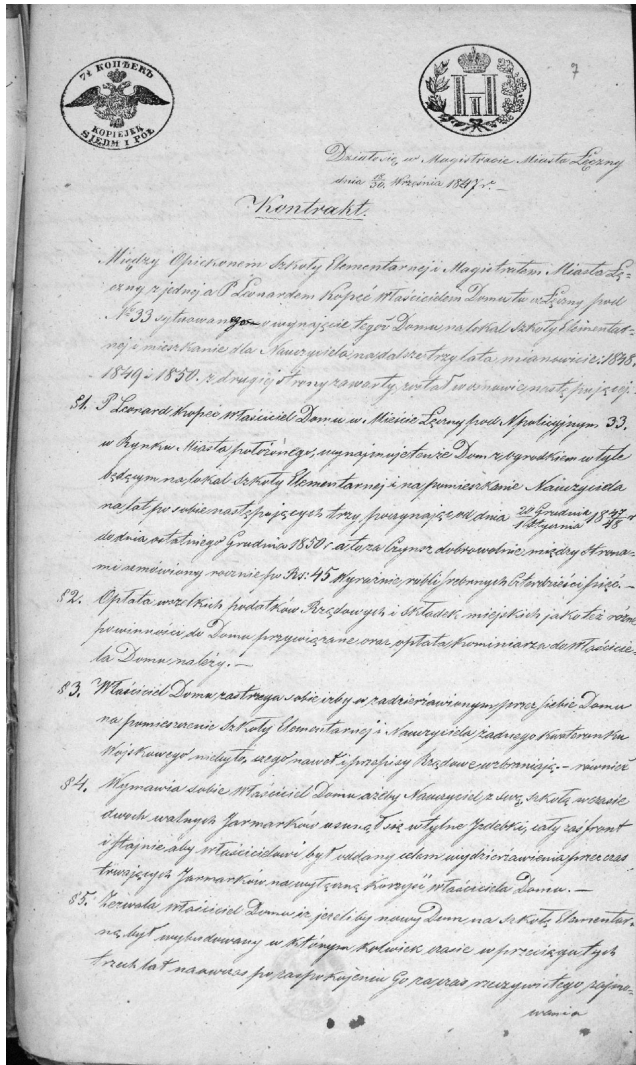 7
7½ КОПѢЕКЪ
KOPIEJEK
SIEDM I PÓŁ
H
II
Działo się w Magistracie Miasta Łęczny
dnia 18/30 Września 1847 r.
Kontrakt.
Między Opiekonem Szkoły Elementarnej i Magistratem Miasta Łę-
czny z jednej a P Leonardem Kopeć Właścicielem Domu tu w Łęczny pod
No 33 sytuowanego o wynajęcie tegoż Domu na lokal Szkoły Elementar-
nej i mieszkanie dla Nauczyciela na dalsze trzy lata, mianowicie: 1848.
1849 i 1850. z drugiej strony zawarty został w osnowie następującej:
§1. P Leonard Kopeć Właściciel Domu w Mieście Łęczny pod N policyjnym 33.
w Rynku Miasta położonego, wynajmuje tenże Dom z ogrodkiem w tyle
będącym na lokal Szkoły Elementarnej i na pomieszkanie Nauczyciela
na lat po sobie następujących trzy, poczynając od dnia 20 Grudnia/1 Stycznia 1847/48 r
do dnia ostatniego Grudnia 1850 r. a to za Czynsz dobrowolnie między Strona-
mi umówiony rocznie po Rs: 45 Wyraznie rubli srebrnych Czterdzieści pięć. —
§2. Opłata wszelkich podatków Rządowych i Składek miejskich jako też różne
powinności do Domu przywiązane oraz opłata kominiarza do Właścicie-
la Domu należy. —
§3. Właściciel Domu zastrzega sobie iżby w zadzierżawionym przez siebie Domu
na pomieszczenie Szkoły Elementarnej i Nauczyciela żadnego kwaterunku
Wojskowego niebyło, czego nawet i przepisy Rządowe wzbraniają. — również
§4. Wymawia sobie Właściciel Domu ażeby Nauczyciel z swą Szkołą w czasie
dwóch walnych Jarmarków usunął się w tylne Izdebki, cały zaś front
i stajnie aby Właścicielowi był oddany celem wydzierzawienia przez czas
trwających Jarmarków na wyłączną Korzyść Właściciela Domu. —
§5. Zezwala Właściciel Domu iż jeżeliby nowy Dom na Szkołę Elementar-
ną był wybudowany w którym kolwiek czasie w przeciągu tych
trzech lat naówczas po zaspokojeniu Go za czas rzeczywistego zajmo-
wania